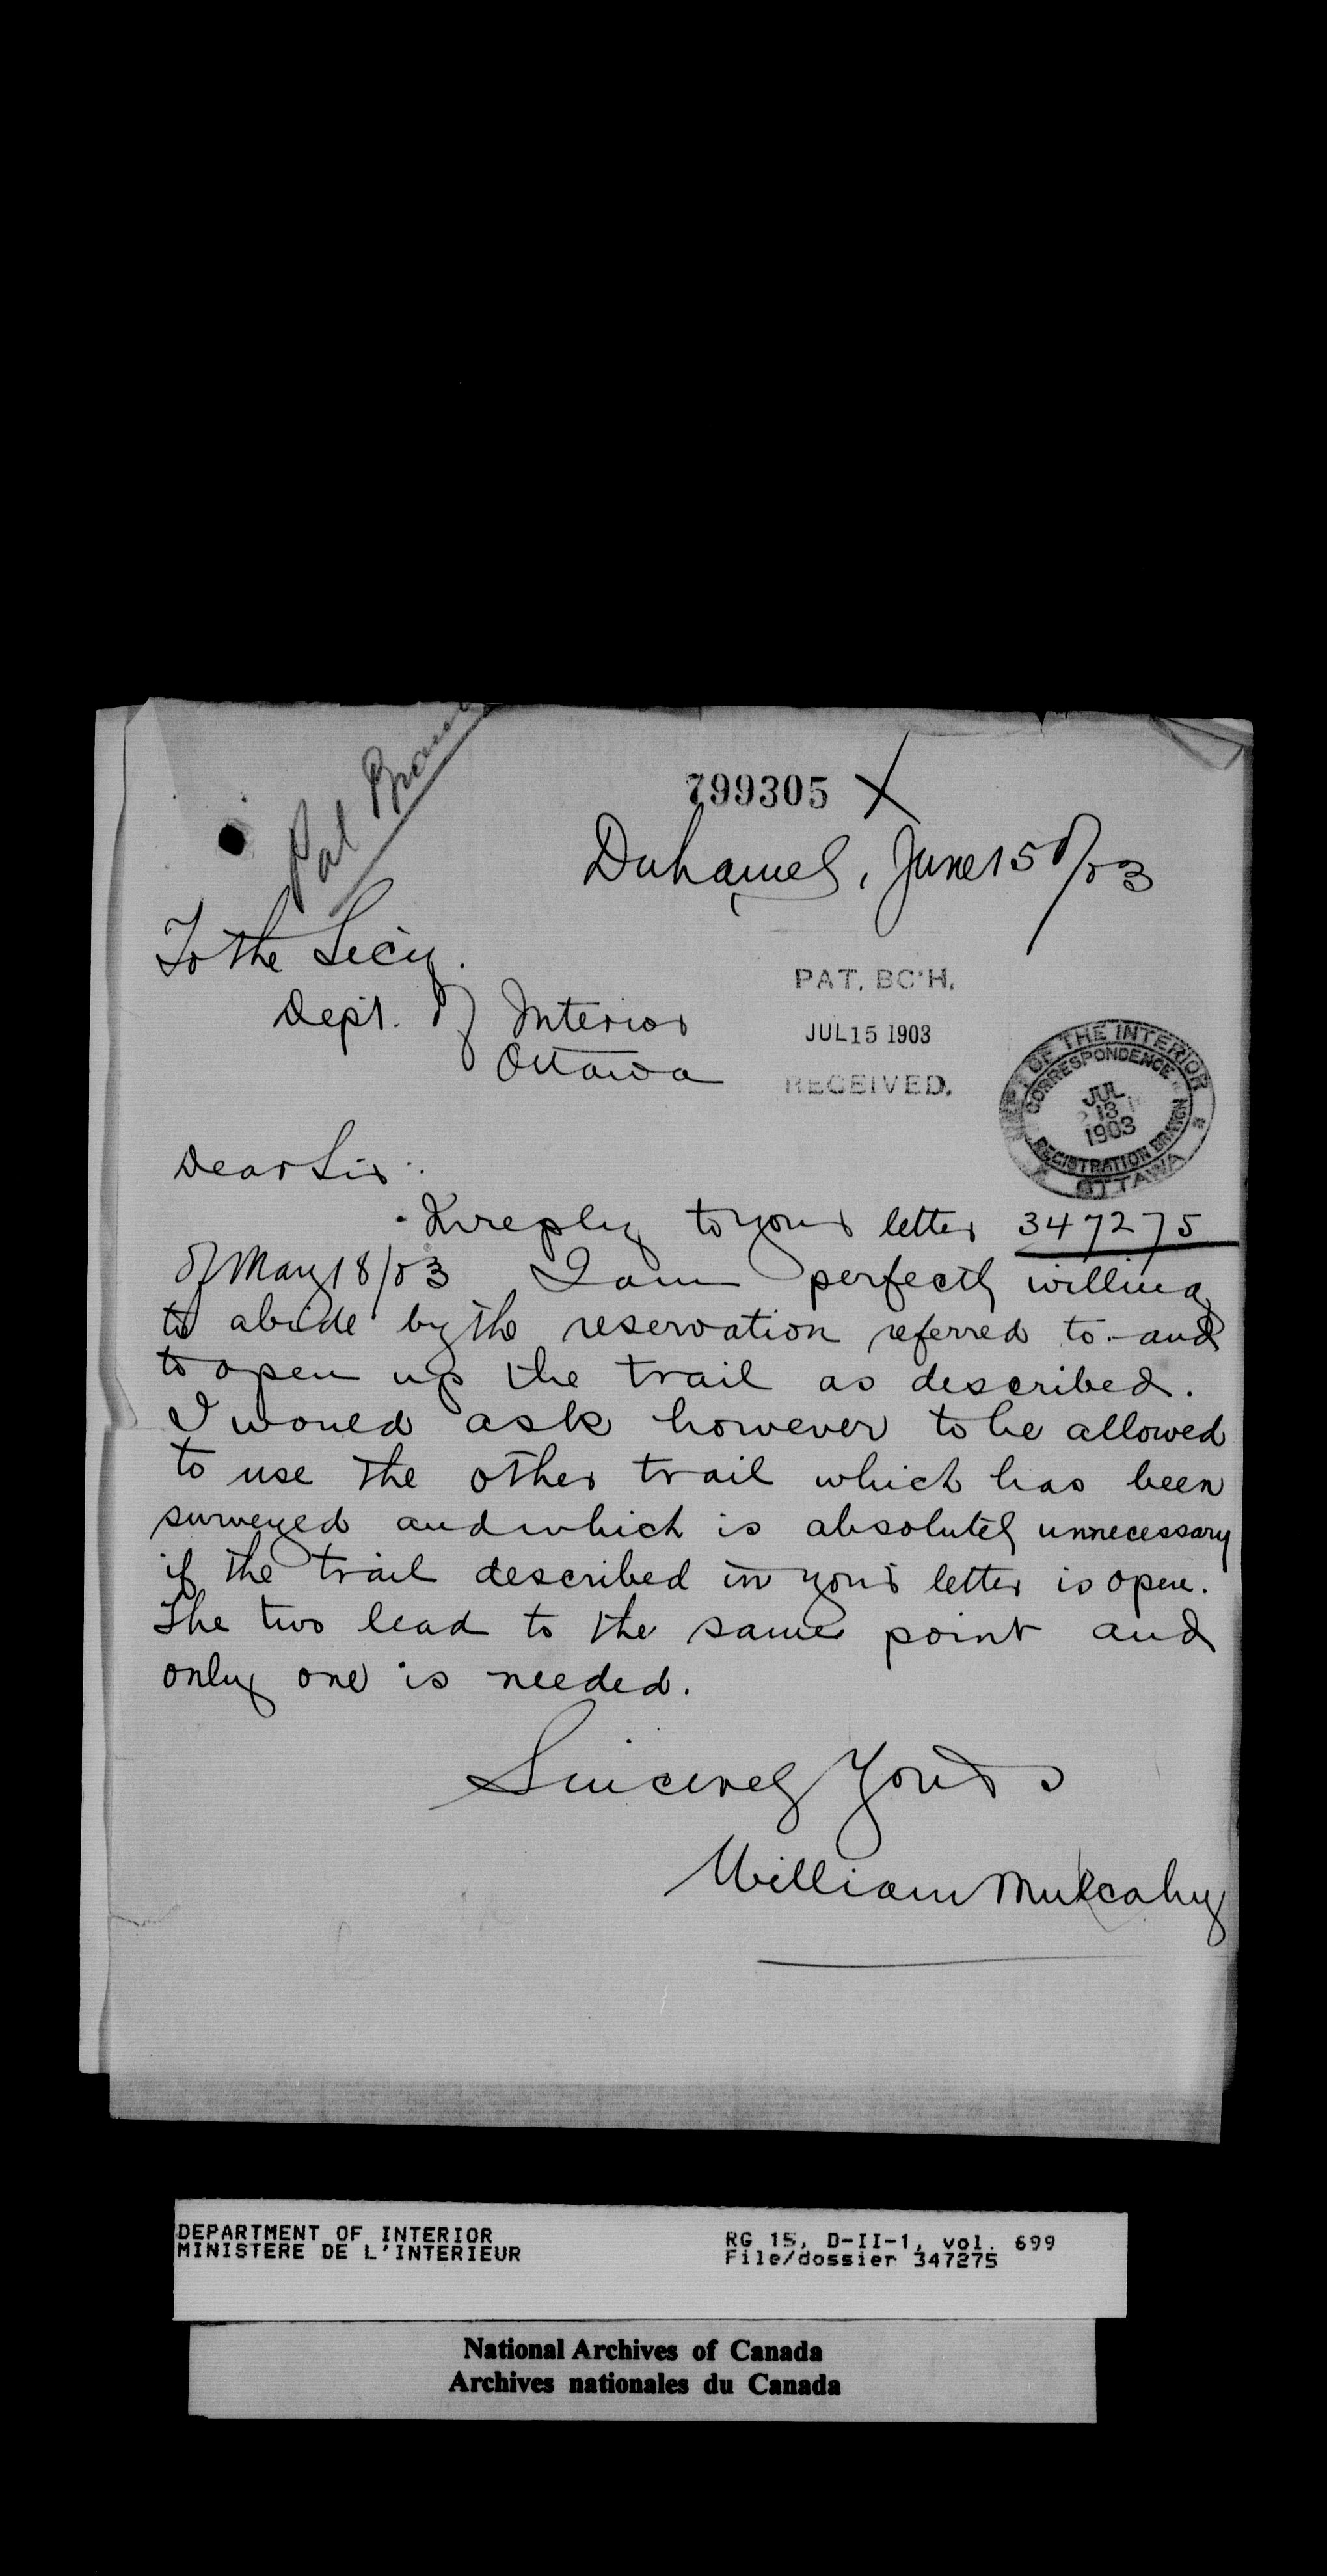 Pat Branc
799305 X
Duhamel, June 15th/03
To the Secy.
Dept. of Interior
Ottawa
PAT. BC'H.
JUL 15 1903
RECEIVED.
DEPT OF THE INTERIOR
CORRESPONDENCE
JUL
13
1903
REGISTRATION BRANCH
OTTAWA
Dear Sir:
In reply to your letter 347275
of May 18/03 I am perfectly willing
to abide by the reservation referred to - and
to open up the trail as described.
I would ask however to be allowed
to use the other trail which has been
surveyed and which is absolutely unnecessary
if the trail described in your letter is open.
The two lead to the same point and
only one is needed.
Sincerely Yours
William Mulcahy
DEPARTMENT OF INTERIOR
MINISTERE DE L'INTERIEUR
RG 15, D-II-1, vol. 699
File/dossier 347275
National Archives of Canada
Archives nationales du Canada